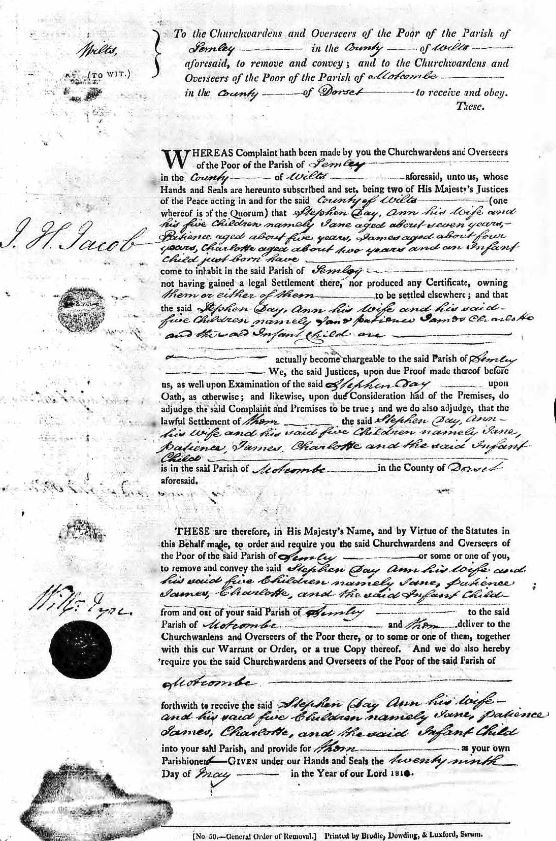 To the Churchwardens and Overseers of the Poor of the Parish of
Semley in the County of Wilts
aforesaid, to remove and convey; and to the Churchwardens and
Overseers of the Poor of the Parish of Motcombe
in the County of Dorset to receive and obey.
These.
Wilts,
(TO WIT.)
WHEREAS Complaint hath been made by you the Churchwardens and Overseers
of the Poor of the Parish of Semley
in the County of Wilts aforesaid, unto us, whose
Hands and Seals are hereunto subscribed and set, being two of His Majesty's Justices
of the Peace acting in and for the said County of Wilts (one
whereof is of the Quorum) that Stephen Day, Ann his Wife and
his five Children namely Jane aged about seven years,
Patience aged about five years, James aged about four
years, Charlotte aged about two years and an Infant
Child just born have
J. H. Jacob
come to inhabit in the said Parish of Semley
not having gained a legal Settlement there, nor produced any Certificate, owning
them or either of them to be settled elsewhere; and that
the said Stephen Day, Ann his Wife and his said
five Children namely Jane Patience James Charlotte
and the said Infant Child are
actually become chargeable to the said Parish of Semley
We, the said Justices, upon due Proof made thereof before
us, as well upon Examination of the said Stephen Day upon
Oath, as otherwise; and likewise, upon due Consideration had of the Premises, do
adjudge the said Complaint and Premises to be true; and we do also adjudge, that the
lawful Settlement of them the said Stephen Day, Ann
his Wife and his said five Children namely Jane,
Patience, James, Charlotte and the said Infant
Child
is in the said Parish of Motcombe in the County of Dorset
aforesaid.
THESE are therefore, in His Majesty's Name, and by Virtue of the Statutes in
this Behalf made, to order and require you the said Churchwardens and Overseers of
the Poor of the said Parish of Semley or some or one of you,
to remove and convey the said Stephen Day Ann his Wife and
his said five Children namely Jane, Patience
James, Charlotte, and the said Infant Child
from and out of your said Parish of Semley to the said
Parish of Motcombe and them deliver to the
Churchwardens and Overseers of the Poor there, or to some or one of them, together
with this our Warrant or Order, or a true Copy thereof. And we do also hereby
require you the said Churchwardens and Overseers of the Poor of the said Parish of
Motcombe
forthwith to receive the said Stephen Day Ann his Wife
and his said five Children namely Jane, Patience
James, Charlotte, and the said Infant Child
into your said Parish, and provide for them as your own
Parishioners GIVEN under our Hands and Seals the twenty ninth
Day of May in the Year of our Lord
[No 50.—General Order of Removal.] Printed by Brodie, Dowding, & Luxford, Sarum.